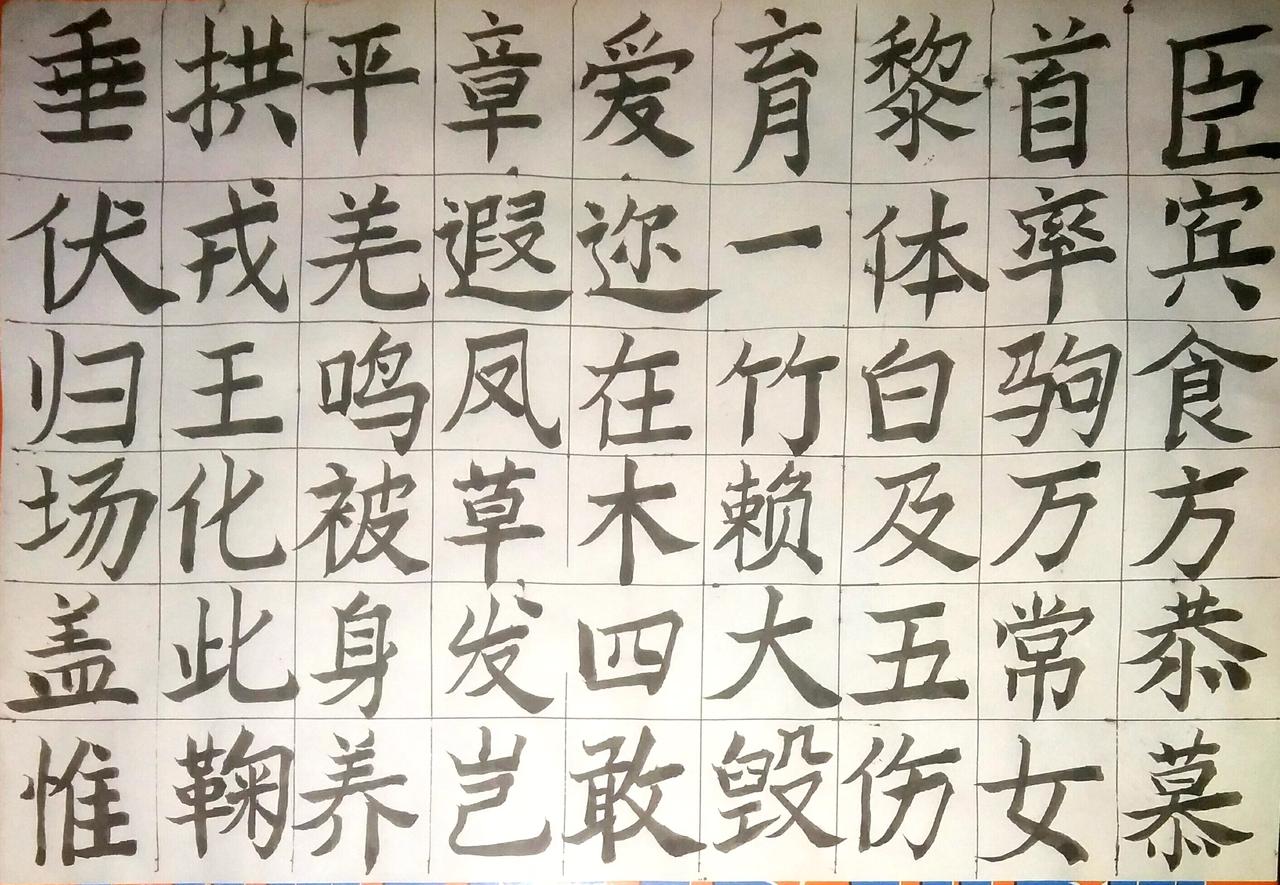 垂拱平章爱育黎首臣
伏戎羌遐迩一体率宾
归王鸣凤在竹白驹食
场化被草木赖及万方
盖此身发四大五常恭
惟鞠养岂敢毁伤女慕